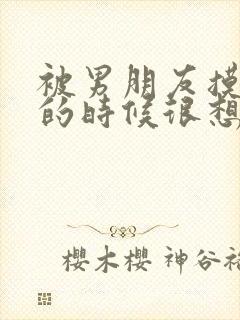 被男朋友摸
的時候很想
櫻木櫻 神谷裕